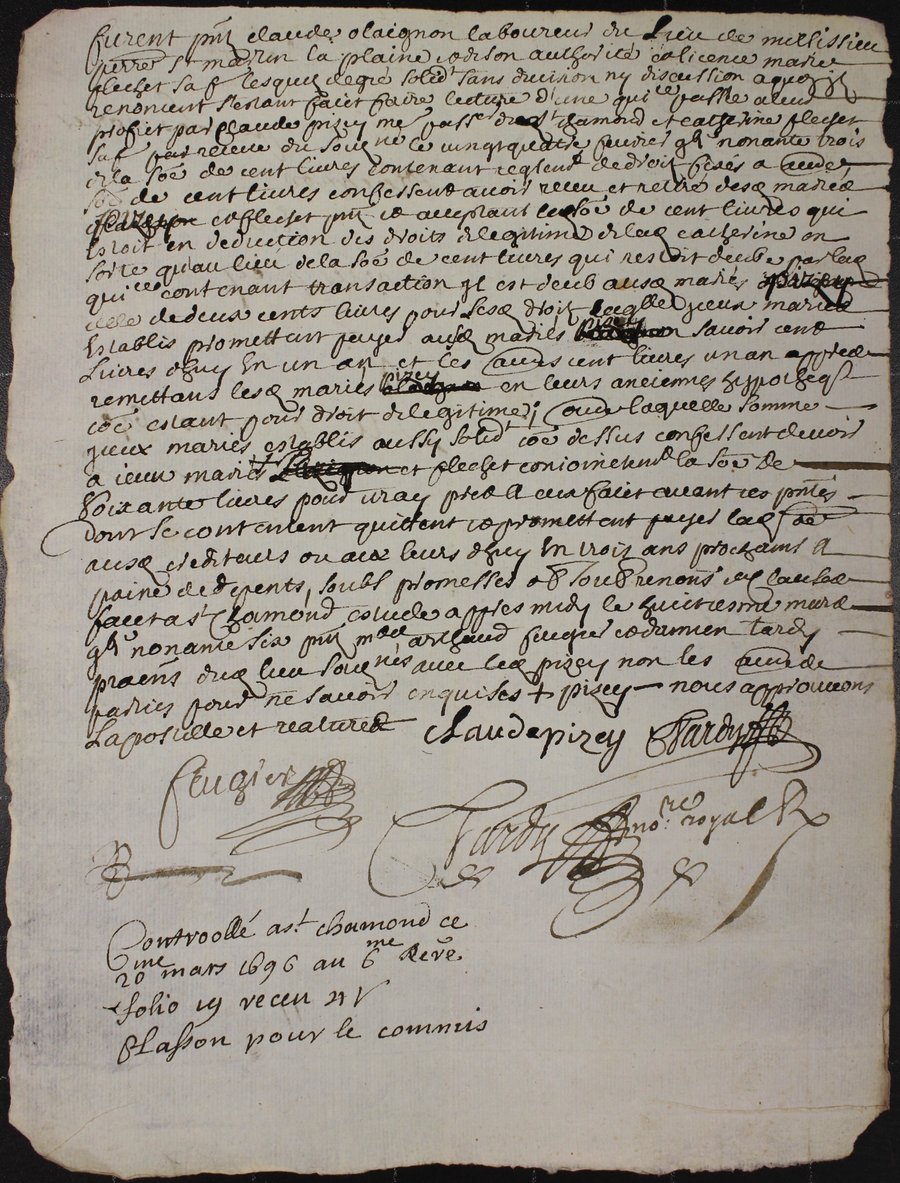 furent pnt claude olaignon laboureur du Lieu de millissieu
pierre St martin la plaine et de son authorité et licence marie
flechet sa f lesquelz de gré solidt sans division ny discussion a quoy
renoncent s'estant faict faire lecture d'une qui ce passée a leur
profict par claude pizey me pass du dt St chamond et catherine flechet
sa f par receue du soune le vingtquatre feuries gbi nonante trois
de la soe de cent livres contenant reglemt de droit
soe de cent livres confessent avoir receu et retiré desq mariés
et flechet pnt et acceptant lad soe de cent livres qui
estoit en deduction des droits de legitime de laq catherine en
sorte qu'au lieu de la soe de cent livres qui restoit deube par laq
qui ce contenant transaction il est deub ausq mariés
de deux cents livres pour lesq droit iceux mariés
establis promettent payer ausq mariés pizey savoir cent
Livres d'huy en un an et les cent livres un an appres
remettans lesq mariés pizey en leurs anciennes hypotheqs
coe estant pour droit de legitime; laquelle somme
yceux mariés establis aussy solidt coe dessus confessent devoir
a iceux mariés et flechet conjoinctemt la soe de
soixante livres pour vray prest a eux faict avant ces pntes
dont se contentent quittent et promettent payer laq soe
ausq crediteurs ou aux leurs d'huy en trois ans prochains a
paine de depents, soubs promesses renons clauses
faict a St chamond estude appres midy le huictiesme mars
gbi nonante six pnt arthaud feugier et damien tardy
praens duq lieu sounés avec leq pizey non les
parties pour ne savoir enquises + pizey nous approuvons
La postille et ratures claude pizey Tardy
feugier
Tardy nore royal R
Controollé a St chamond ce
20me mars 1696 au 6me Reve.
folio 19 receu
Classon pour le commis